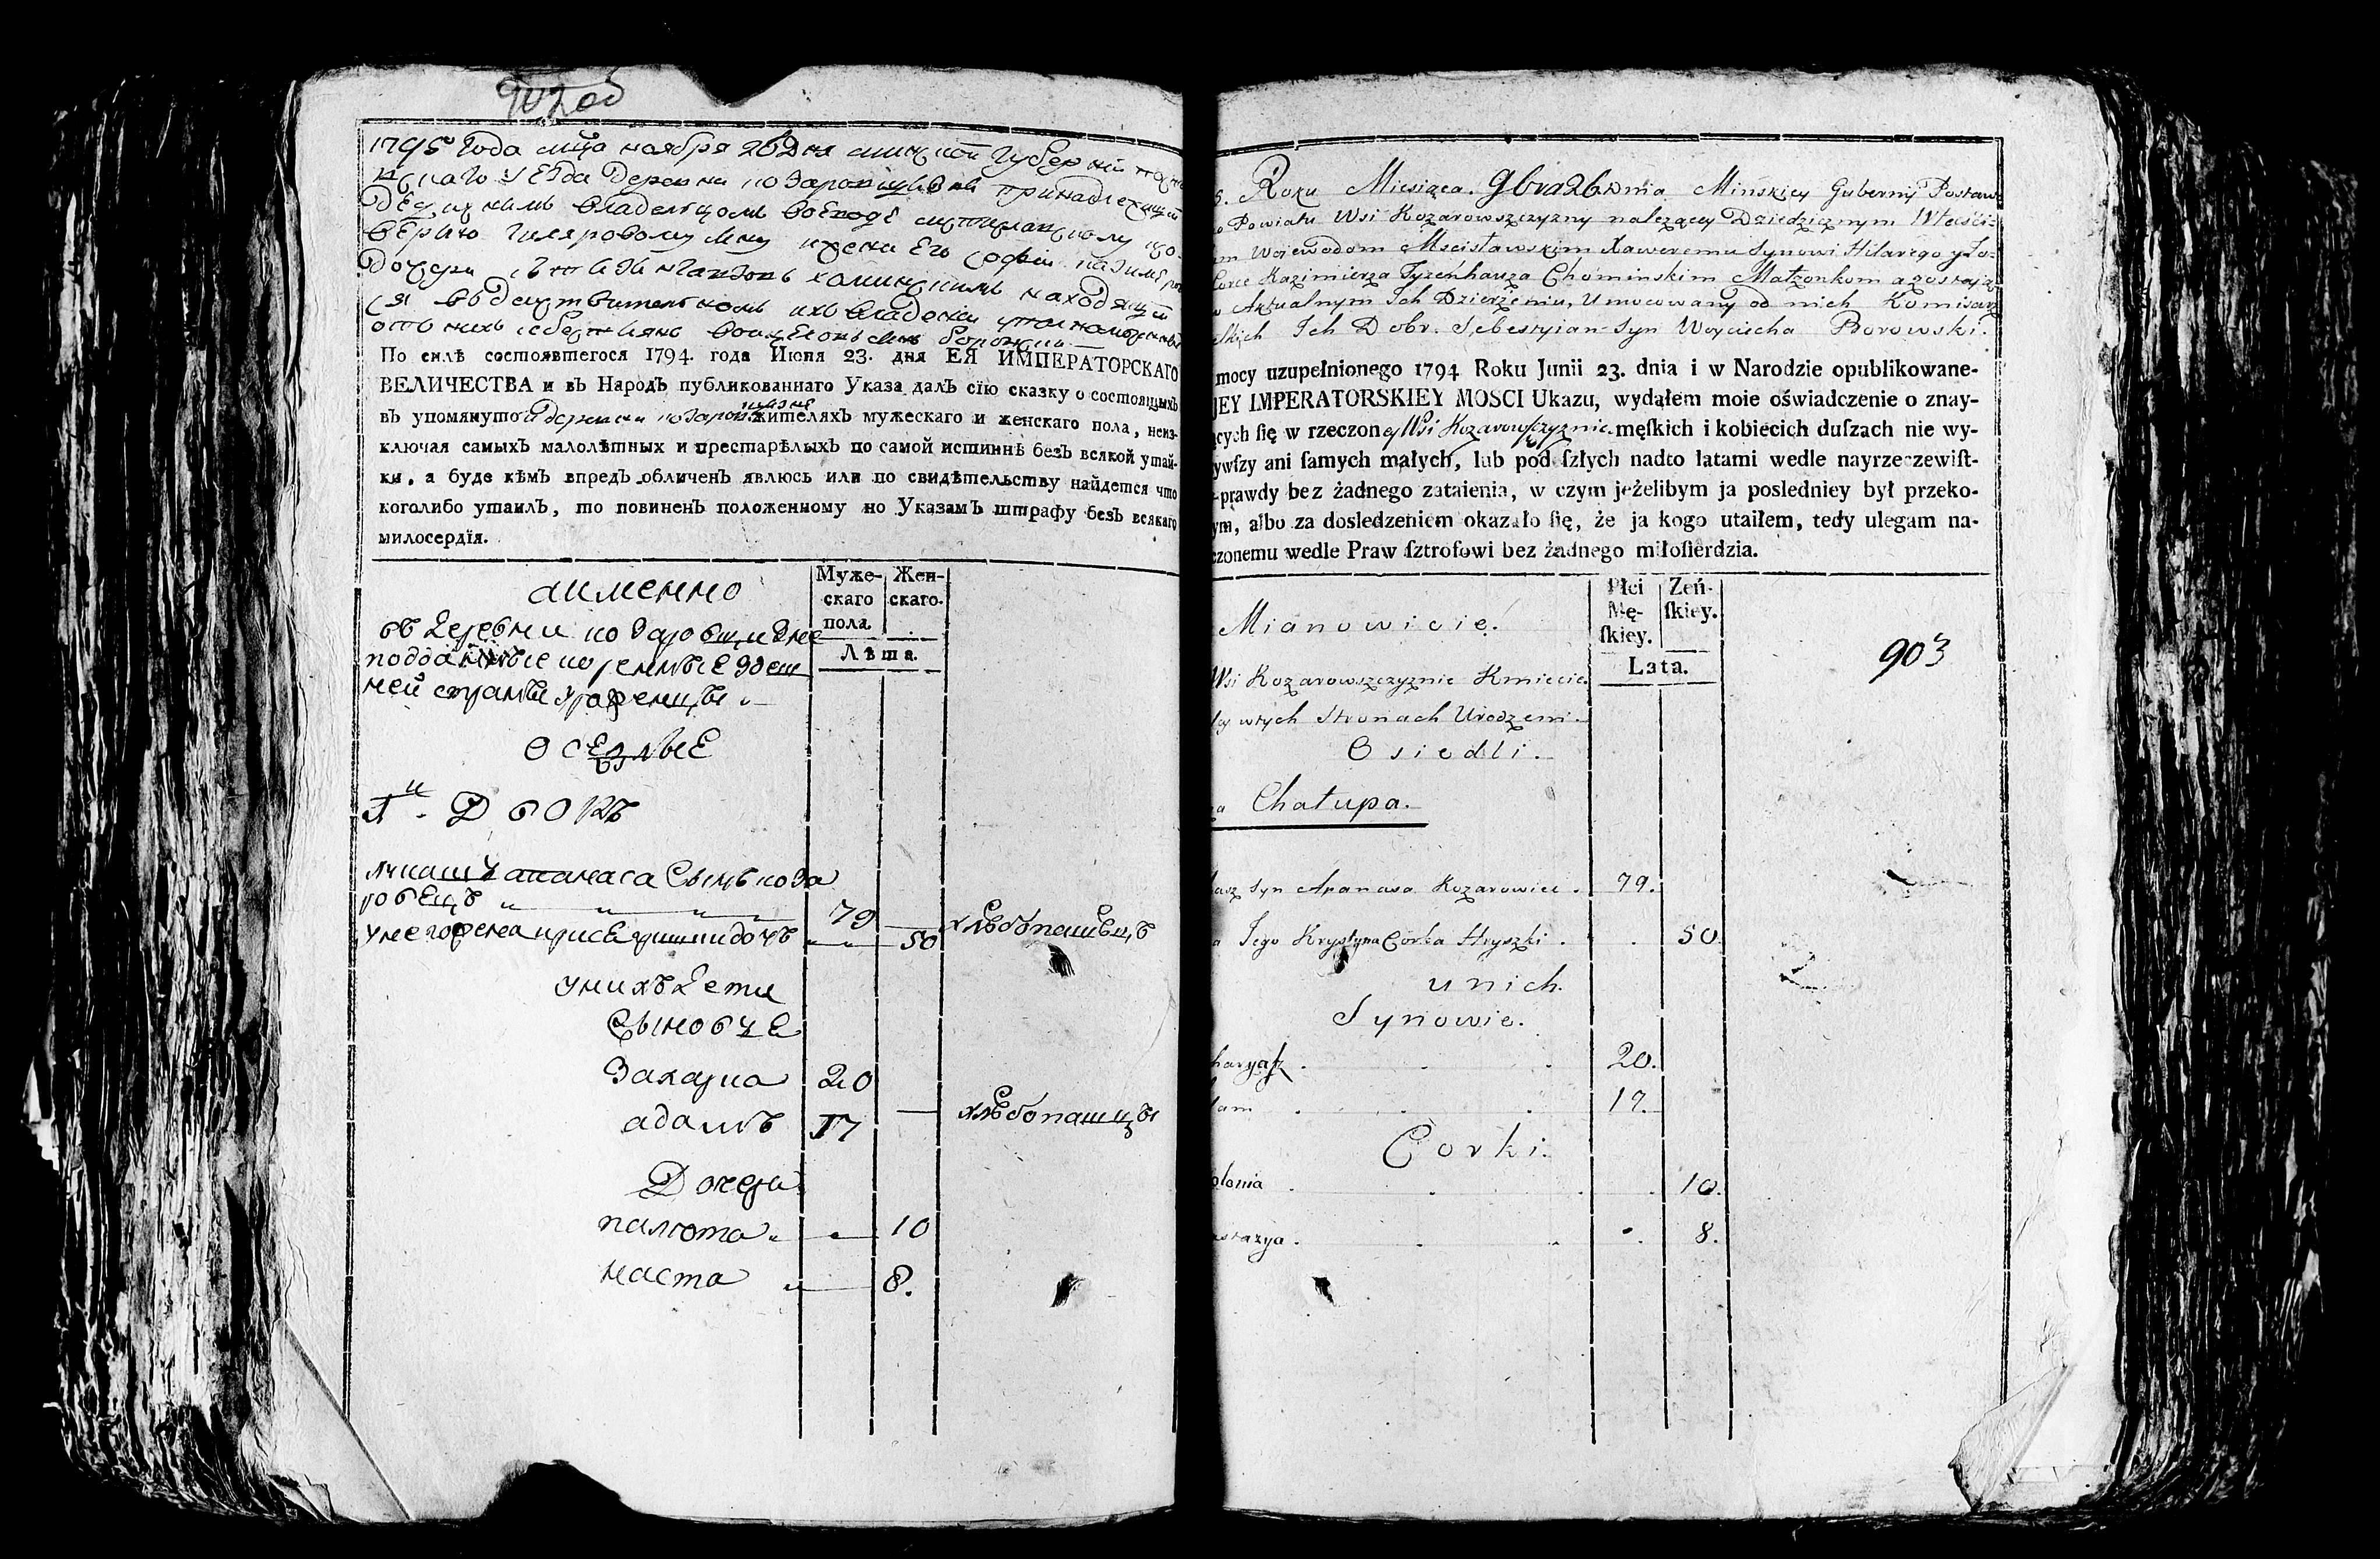 902 об
1795 Года мца ноября 26 Дня минской Губернии
уезда деревни козаровщизни принадлежащей
владельцом воеводе
его
дочери находящей
ся в действителном их владении
от них
По силѣ состоявшегося 1794. года Июня 23. дня ЕЯ ИМПЕРАТОРСКАГО
ВЕЛИЧЕСТВА и въ Народъ публикованнаго Указа далъ сїю сказку о состоящихъ
въ упомянутой деревни козаровщизне жителяхъ мужескаго и женскаго пола, неиз-
ключая самыхъ малолѣтных и престарѣлыхъ по самой истиннѣ безъ всякой утай-
ки, а буде кѣмъ впредъ обличенъ явлюсь или по свидѣтельству найдется что
коголибо утаилъ, то повиненъ положенному по Указамъ штрафу безъ всякаго
милосердїя.
аименно
Муже-
скаго
пола
Жен-
скаго.
Лѣта.
въ деревни козаровщизне
подданные коренные здеш
ней страны уроженцы
осеДлые
1й. Дворъ
лукашъ апанаса сынъ коза
ровецъ 79 хлѣбопашецъ
у него жена крися гришки дочъ 50
у нихъ дети
сыновье
Захарка 20
адамъ 17 хлѣбопашцы
Дочери
палюта 10
наста 8.
5. Roku Miesiąca. 9bra 26 Dnia Minskiey Guberny Postaw
o Powiatu Wsi Kozarowszczyzny należącey Dziedzicznym Właści-
m Woiewodom Mscisławskim Xaweremu Synowi Hilarego y Zo-
Corce Kazimierza Tyzeńhauza Chominskim Małżonkom a zostaią
w Aktualnym Ich Dzierżeniu, Umocowany od nich Komisarz
elkich Ich Dobr. Sebestyian Syn Woyciecha Borowski.
mocy uzupełnionego 1794 Roku Junii 23. dnia i w Narodzie opublikowane-
JEY IMPERATORSKIEY MOSCI Ukazu, wydąłem moie oświadczenie o znay-
ących ſię w rzeczoney Wsi Kozarowſzczyznie męſkich i kobiecich duſzach nie wy-
ywſzy ani ſamych małych, lub pod ſzłych nadto latami wedle nayrzeczewiſt-
prawdy bez żadnego zataienia, w czym jeżelibym ja posledniey był przeko-
ym, albo za dosledzeniem okazało ſię, że ja kogo utaiłem, tedy ulegam na-
czonemu wedle Praw ſztrofowi bez żadnego miłoſierdzia.
Mianowicie.
Płci
Mę-
ſkiey.
Zeń-
ſkiey.
Lata.
903
Wsi Kozarowszczyznie Kmiecie
y wtych Stronach Urodzeni
Osiedli.
a Chałupa.
asz Syn Apanasa Kozarowiec. 79.
a Jego Krystyna Corka Hryszki. 50
unich.
Synowie.
haryaſz 20.
dam 17.
Corki.
olonia 10.
astazya. 8.